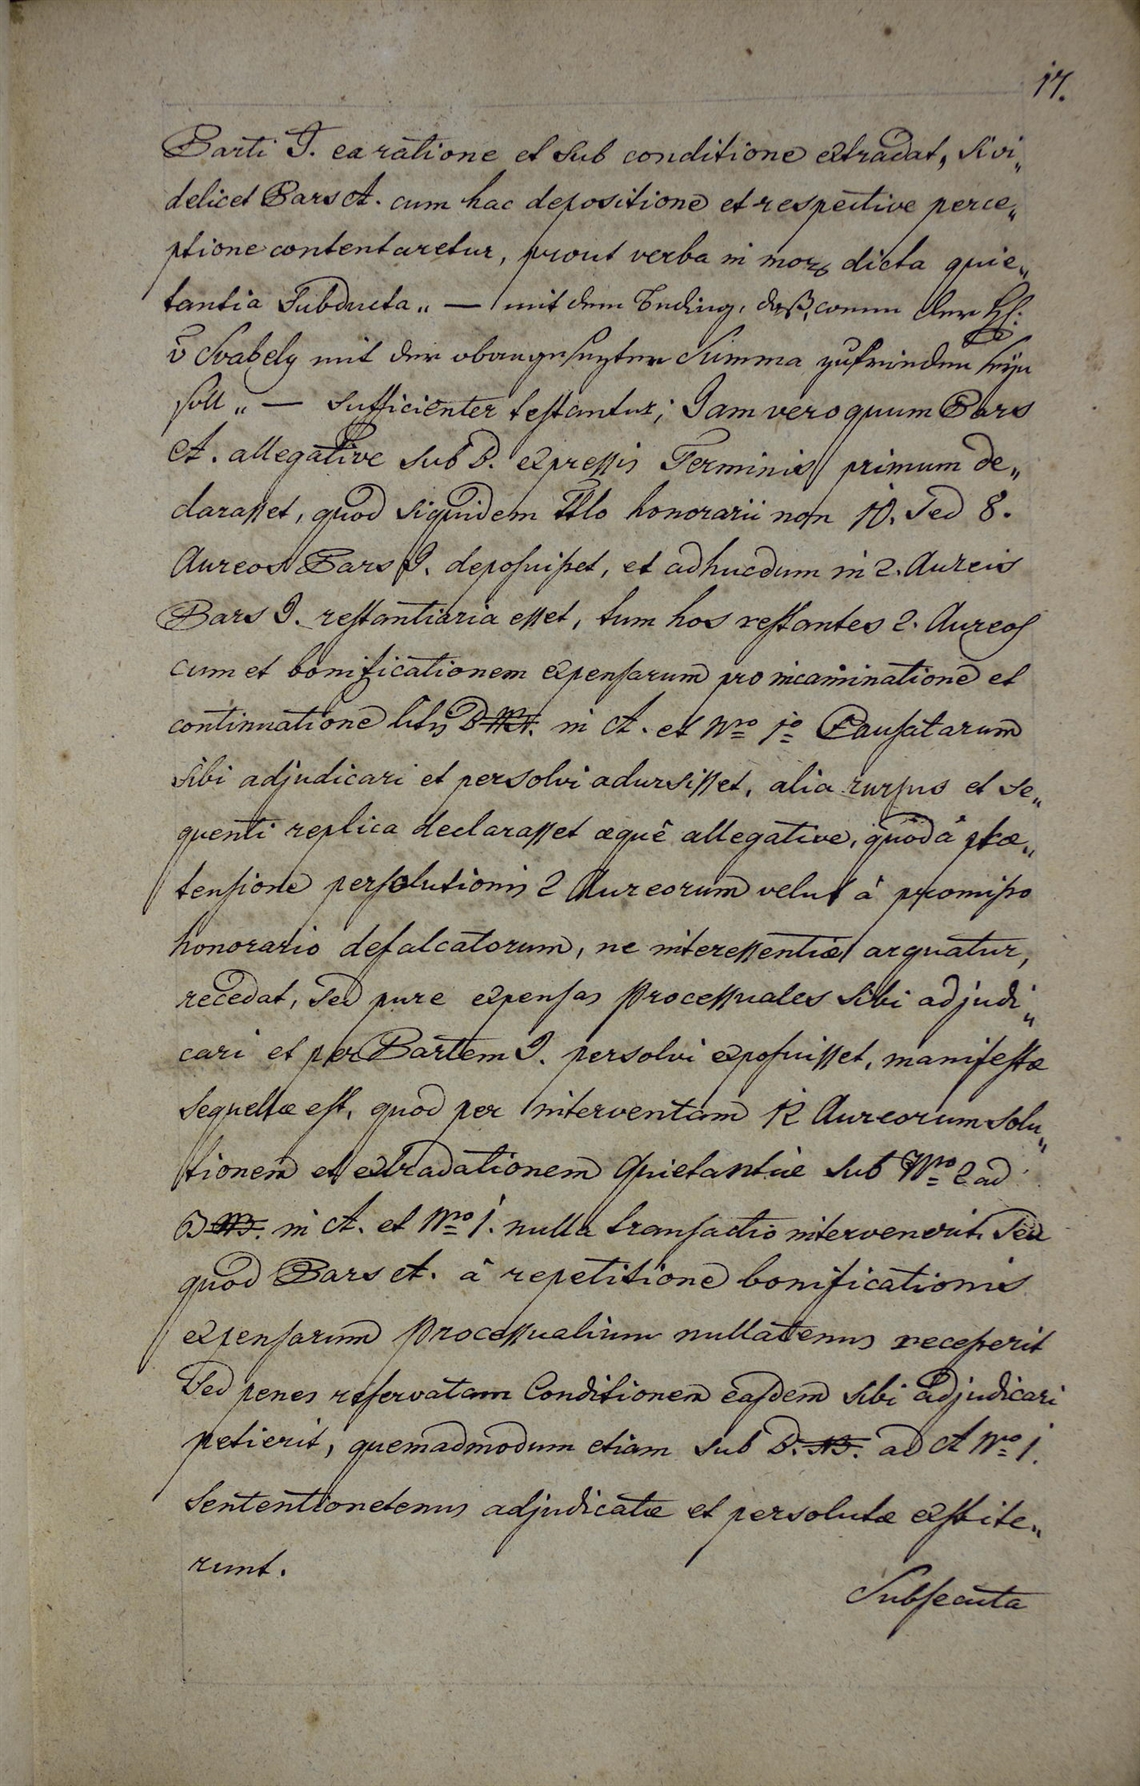 17.
Parti I. ea ratione et sub conditione extradat, si vi„
delicet Pars A. cum hac depositione et respective perce„
ptione contentaretur, prout verba in dicta quie„
tantia subducta„ — mit dem Beding, daß, wenn der H:
v Svabely mit der obangesezten Summa zufrieden seyn
soll„ — sufficienter testantur; Jam vero quum Pars
A. allegative sub D. expressis Terminis primum de„
clarasset, quod siquidem Ttlo honorarii non 10. sed 8.
Aureos Pars I. deposuisset, et adhucdum in 2. Aureis
Pars I. restantiaria esset, tum hos restantes 2. Aureos
cum et bonificationem expensarum pro incaminatione et
continuatione litis in A. et Nro 1o Causatarum
sibi adjudicari et persolvi adursisset, alia rursus et se„
quenti replica declarasset aequè allegative, quod à prae„
tensione persolutionis 2 Aureorum velut à promisso
honorario defalcatorum, ne interessentiae arguatur,
recedat, sed pure expensas Processuales sibi adjudi„
cari et per Partem I. persolvi exposuisset, manifestae
sequellae est, quod per interventam 12 Aureorum solu„
tionem et extradationem Quietantiae sub Nro 2 ad
in A. et Nro 1. nulla transactio intervenerit, sed
quod Pars A. à repetitione bonificationis
expensarum Processualium nullatenus recesserit
sed penes reservatam Conditionem easdem sibi adjudicari
petierit, quemadmodum etiam sub ad A Nro 1.
sententionetenus adjudicatae et persolutae exstite„
runt.
Subsecuta